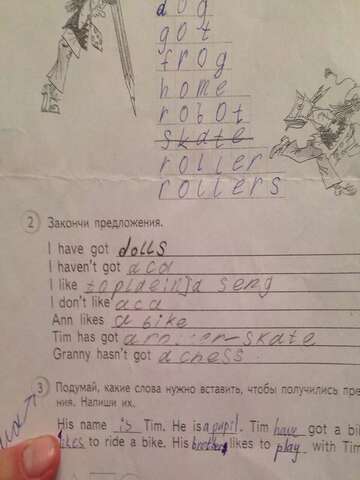 dog
got
frog
home
robot
skate
roller
rollers
2 Закончи предложения.
I have got dolls
I haven't got a ca
I like
I don't like a ca
Ann likes a bike
Tim has got a roller-skate
Granny hasn't got a chess.
3 Подумай, какие слова нужно вставить, чтобы получились пре
ния. Напиши их.
His name is Tim. He is a pupil. Tim have got a bi
likes to ride a bike. His brothers likes to play with Tim